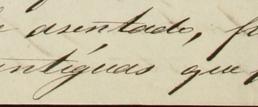 asentado,
antiguas que